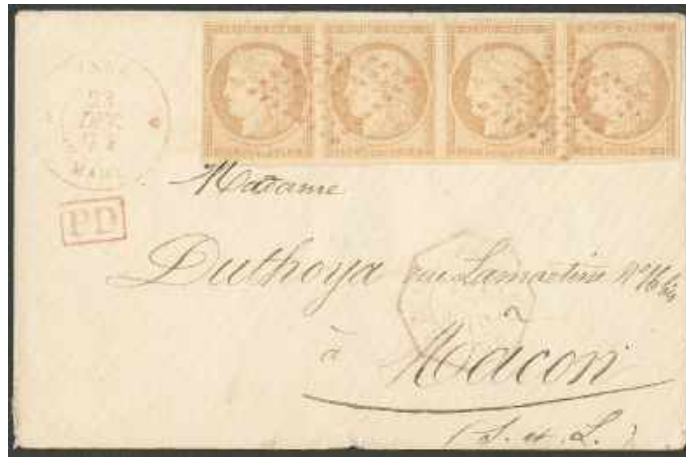 23
DEC.
PD
Madame
Duthoya rue Lamartine Nº 16 bis
à Mâcon
(S. et L.)